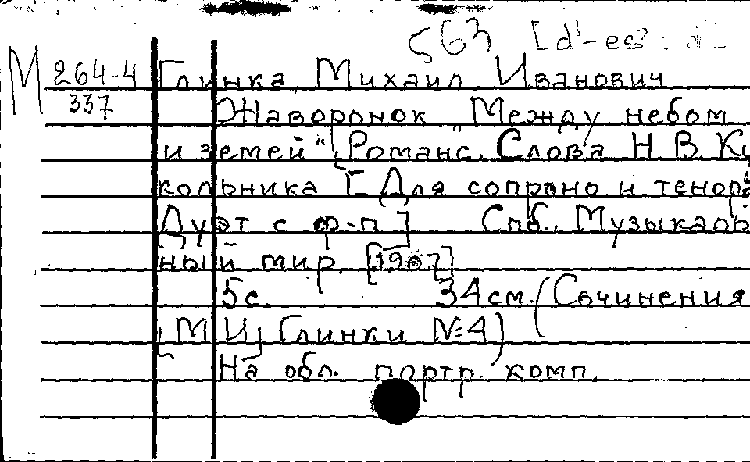 563
М 264-4 Глинка, Михаил Иванович
337 Жаворонок "Между небом
и землей". Романс. Слова Н. В. Ку
кольника [Для сопрано и тенора
Дуэт с ф-п.] Спб., Музыкаль
ный мир, [1907]
5с. 34см. (Сочинения
[М. И.] Глинки №4)
На обл. портр. комп.